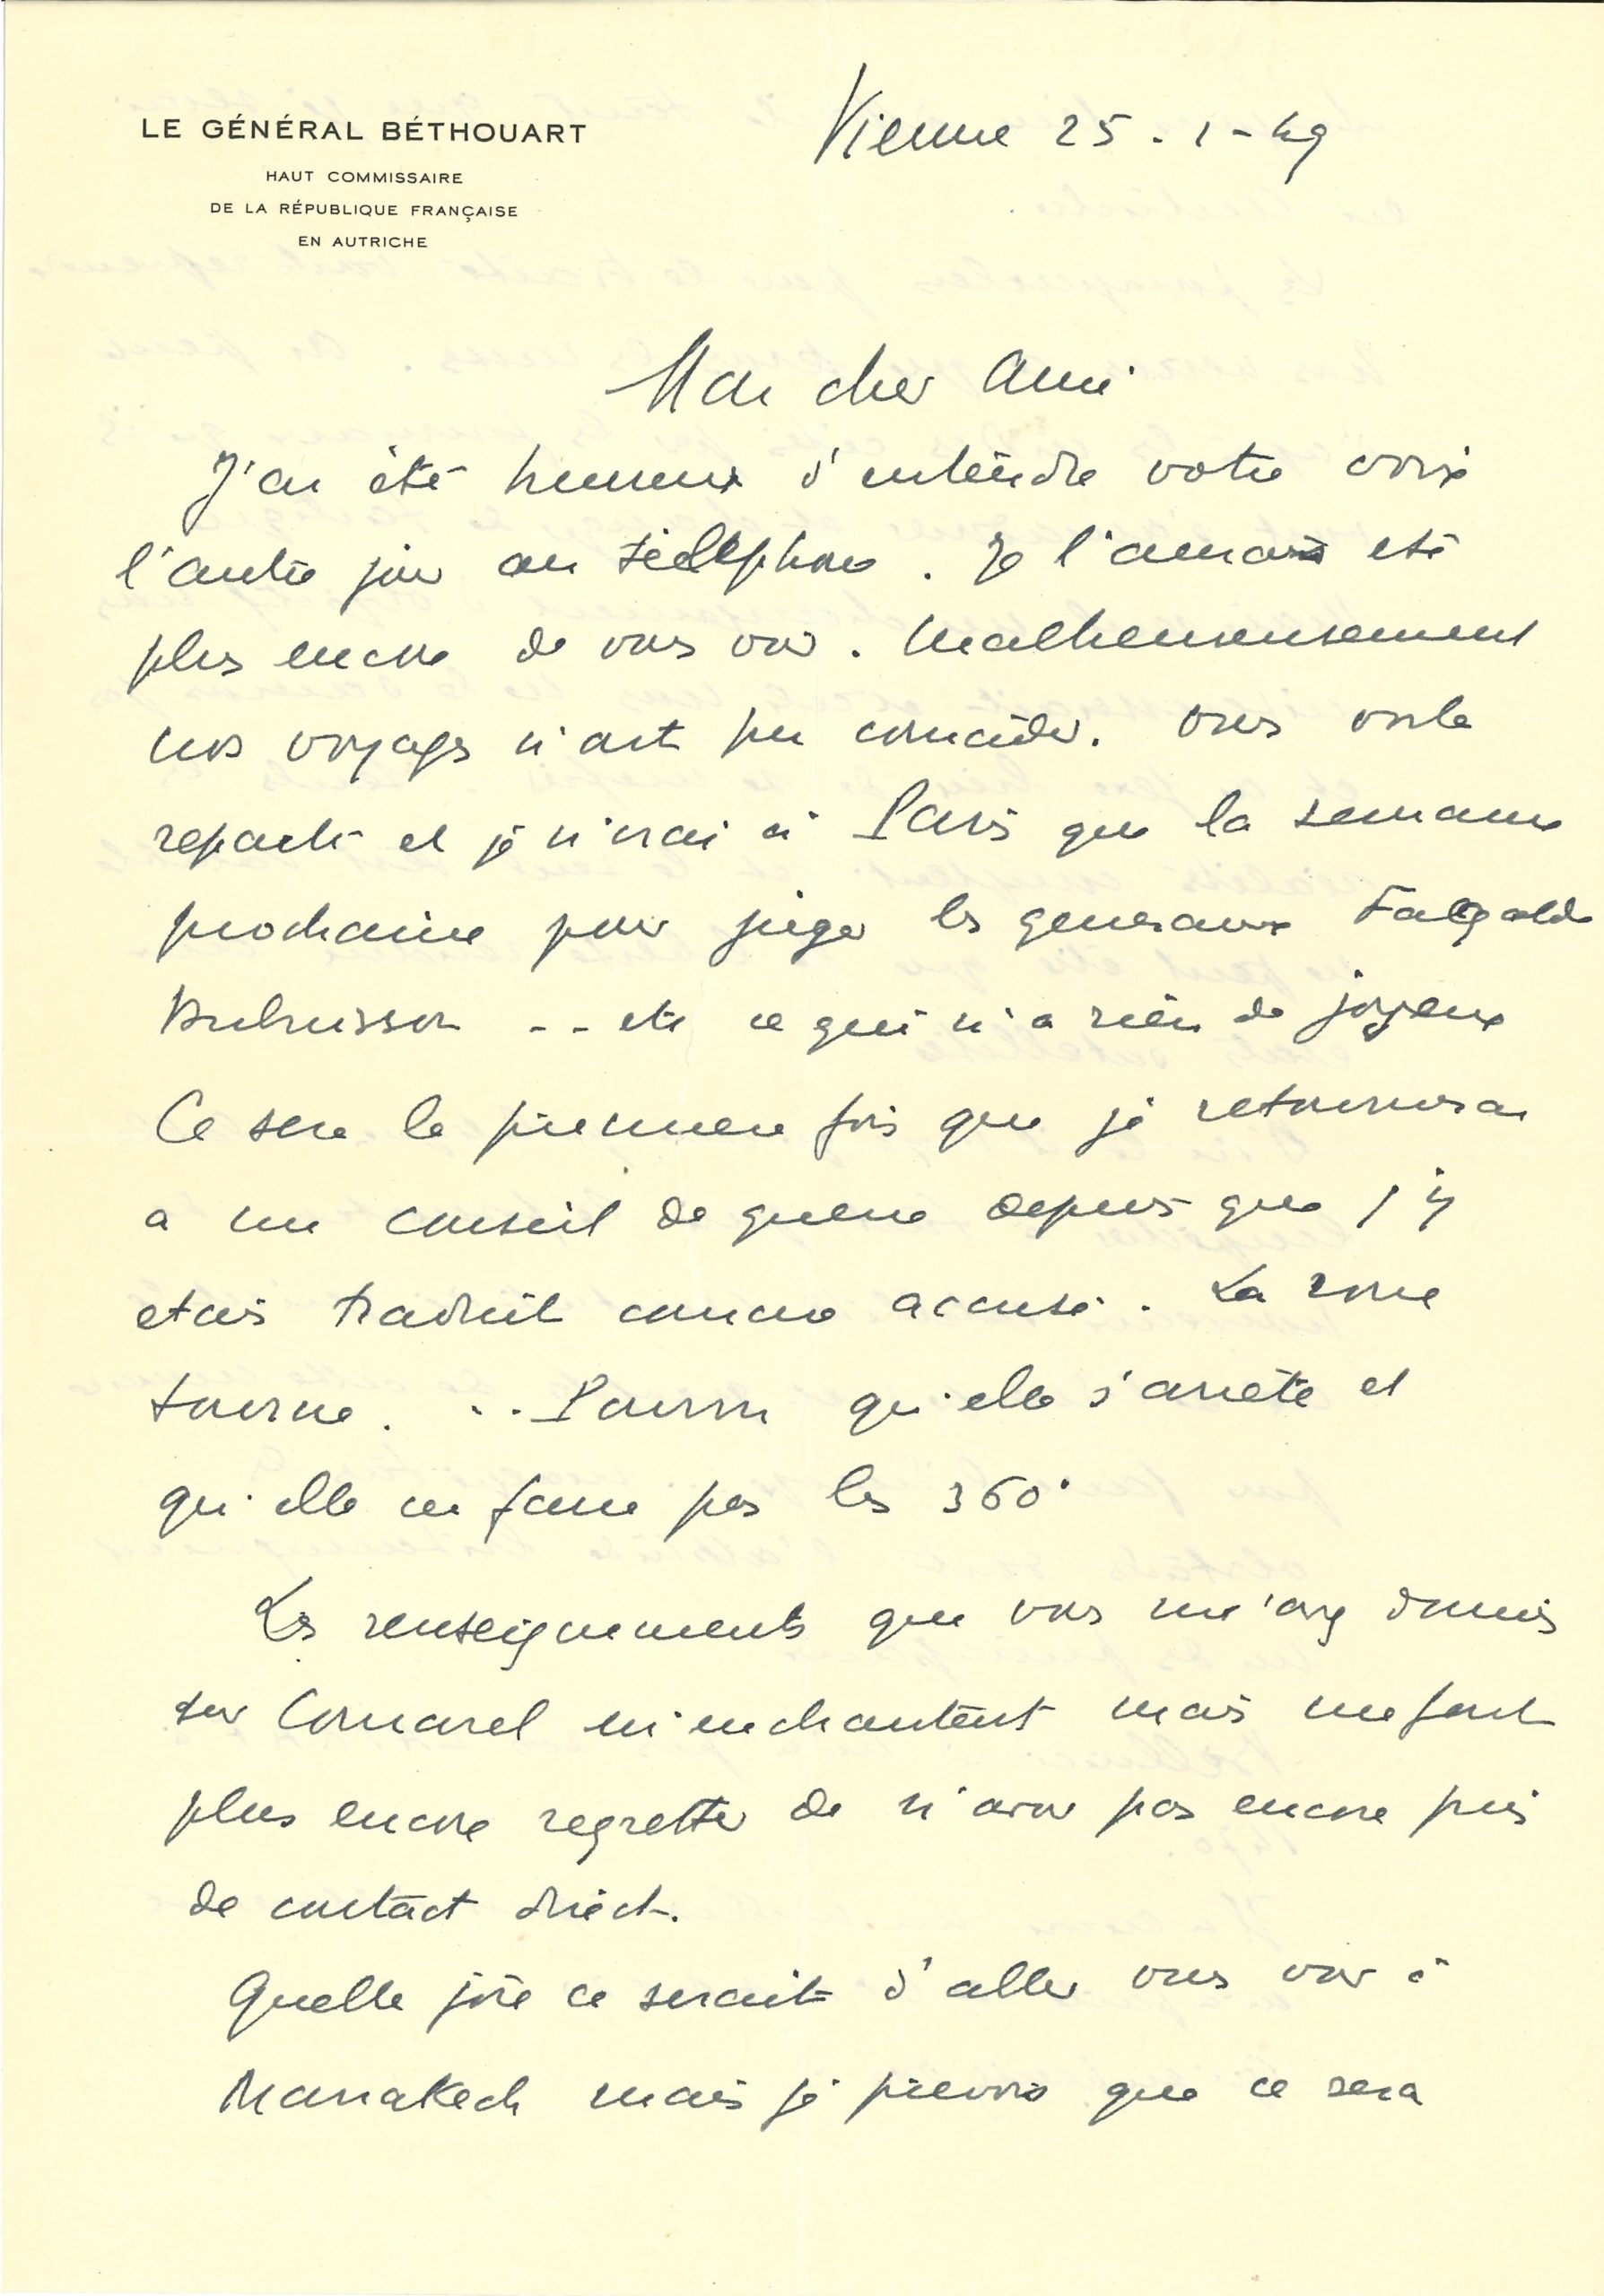 LE GÉNÉRAL BÉTHOUART
HAUT COMMISSAIRE
DE LA RÉPUBLIQUE FRANÇAISE
EN AUTRICHE
Vienne 25 . 1 - 49
Mon cher Ami
J'ai été heureux d'entendre votre voix
l'autre jour au téléphone . Je l'aurais été
plus encore de vous voir . Malheureusement
nos voyages n'ont pu coincider. Vous voila
reparti et je n'irai à Paris que la semaine
prochaine pour juger les generaux Falgalde
Dubuisson - - etc ce qui n'a rien de joyeux
Ce sera la premiere fois que je retournerai
a un conseil de guerre depuis que j'y
etais traduit comme accusé . La roue
tourne . . . Pourvu qu'elle s'arrête et
qu'elle ne fasse pas les 360°
Les renseignements que vous m'avez donnés
sur m'enchantent mais me font
plus encore regretter de n'avoir pas encore pris
de contact direct.
Quelle joie ce serait d'aller vous voir à
Marrakech mais je prevois que ce sera